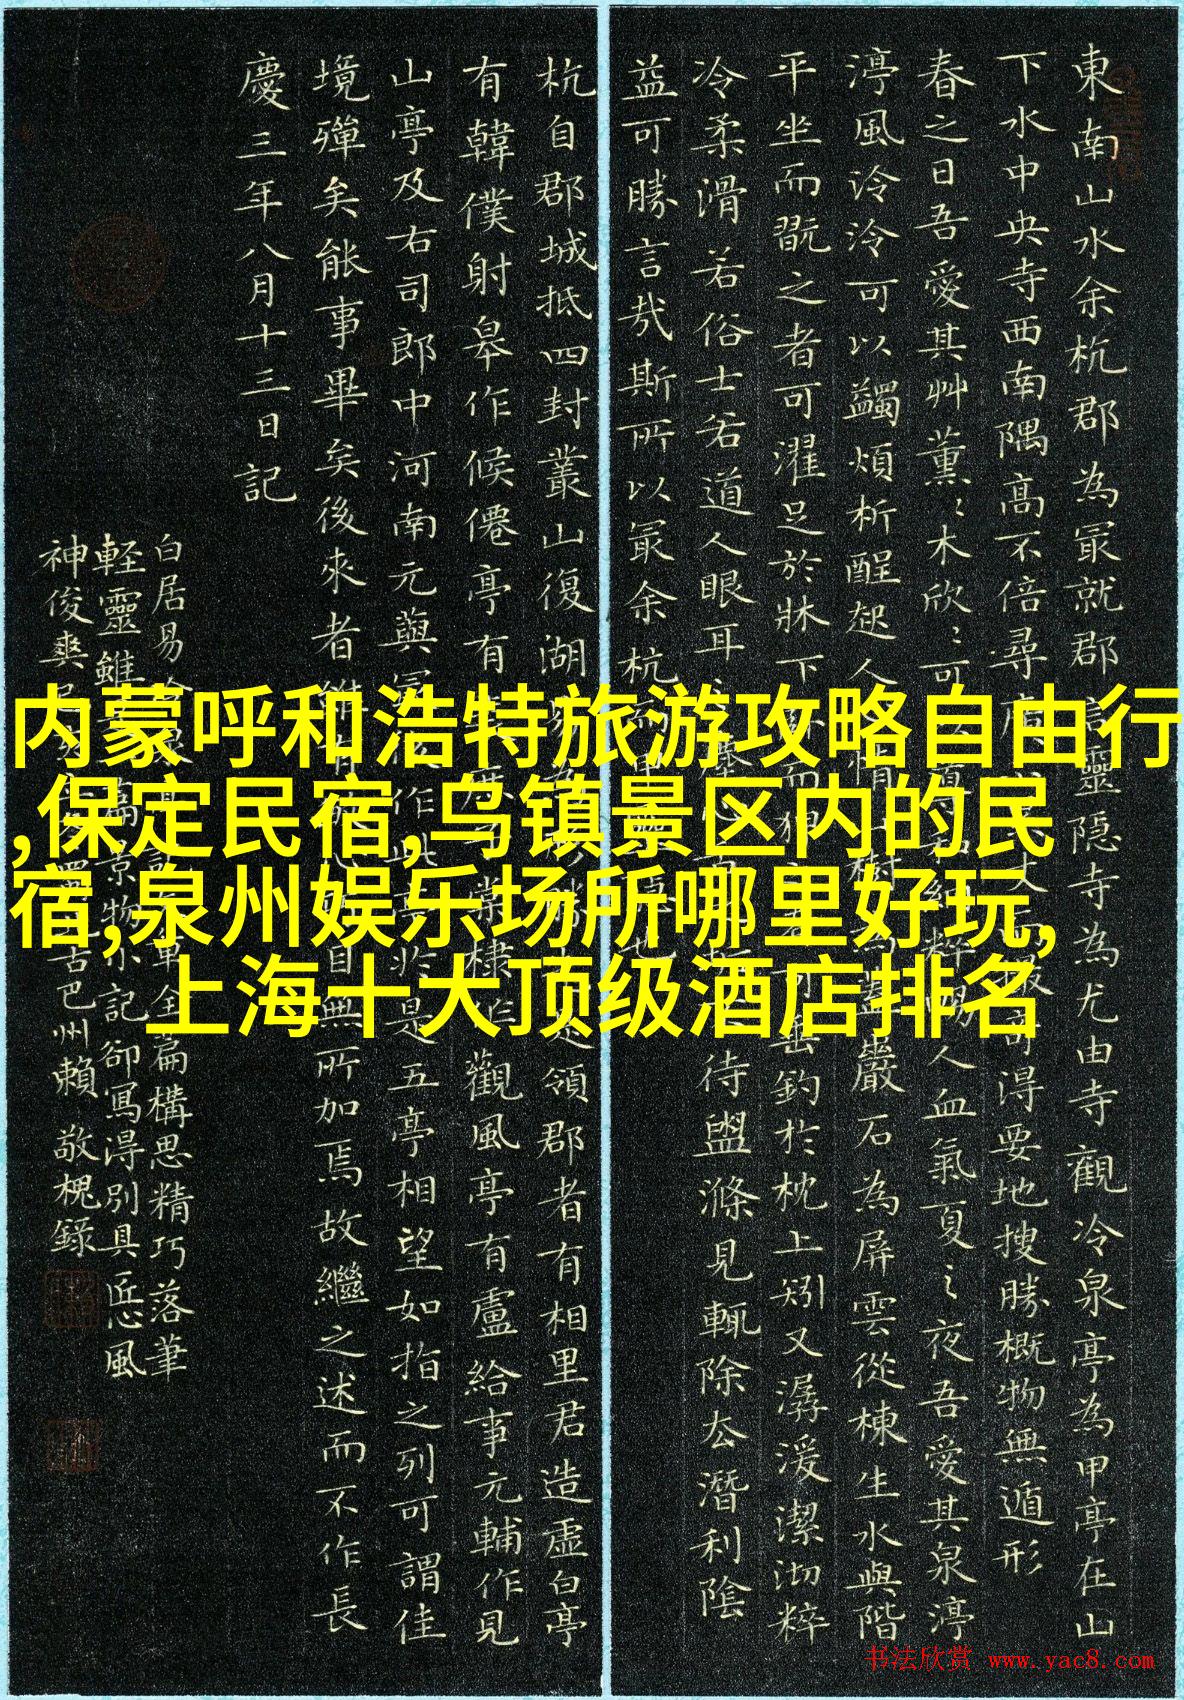 東南山水余杭郡為冣就郡言靈隱寺為尤由寺觀冷泉亭為甲亭在山
下水中央寺西南隅高不倍尋廣得要地搜勝概物無遁形
春之日吾愛其艸薰〻木欣〻可納粹暢人血氣夏之夜吾愛其泉渟
渟風泠泠可以蠲煩析酲起人心情樹為蓋巖石為屏雲從棟生水與階
平坐而翫之者可濯足於牀下臥而狎之者垂釣於枕上矧又潺湲潔沏粹
冷柔滑若俗士若道人眼耳之塵心待盥滌見輒除去潛利陰
益可勝言哉斯所以冣余杭而甲靈隱也
杭自郡城抵四封叢山復湖易為是領郡者有相里君造虛白亭
有韓僕射皋作候僊亭有裴庶子棠棣作觀風亭有盧給事元輔作見
山亭及右司郎中河南元藇最後作此亭於是五亭相望如指之列可謂佳
境殫矣能事畢矣後來者雖有敏心巧目無所加焉故繼之述而不作長
慶三年八月十三日記
白居易冷泉亭記全篇構思精巧落筆
輕靈雖為景物小記卻寫得別具匠心風
神俊爽古巴州賴敬槐錄
内蒙呼和浩特旅游攻略自由行
,保定民宿,乌镇景区内的民
宿,泉州娱乐场所哪里好玩,
上海十大顶级酒店排名
书法欣赏 www.yac8.com